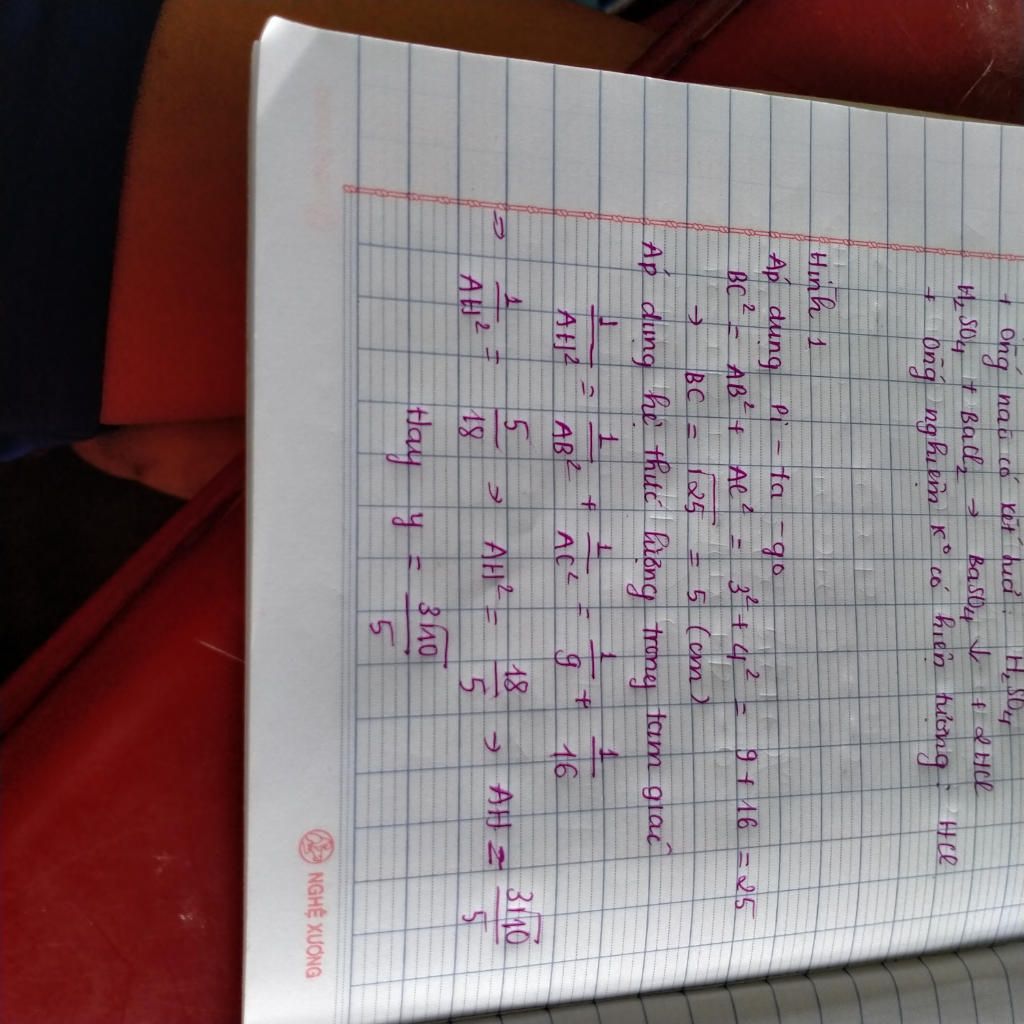 + Ống nào có kết tủa : H₂SO₄
H₂SO₄ + BaCl₂ → BaSO₄ ↓ + 2HCl
+ Ống nghiệm k° có hiện tượng : HCl
Hình 1
Áp dụng Pi - ta - go
BC² = AB² + AC² = 3² + 4² = 9 + 16 = 25
→ BC = √25 = 5 (cm)
Áp dụng hệ thức lượng trong tam giác
1/AH² = 1/AB² + 1/AC² = 1/9 + 1/16
⇒ 1/AH² = 5/18 → AH² = 18/5 → AH = 3√10/5
Hay y = 3√10/5
NGHỆ XƯƠNG